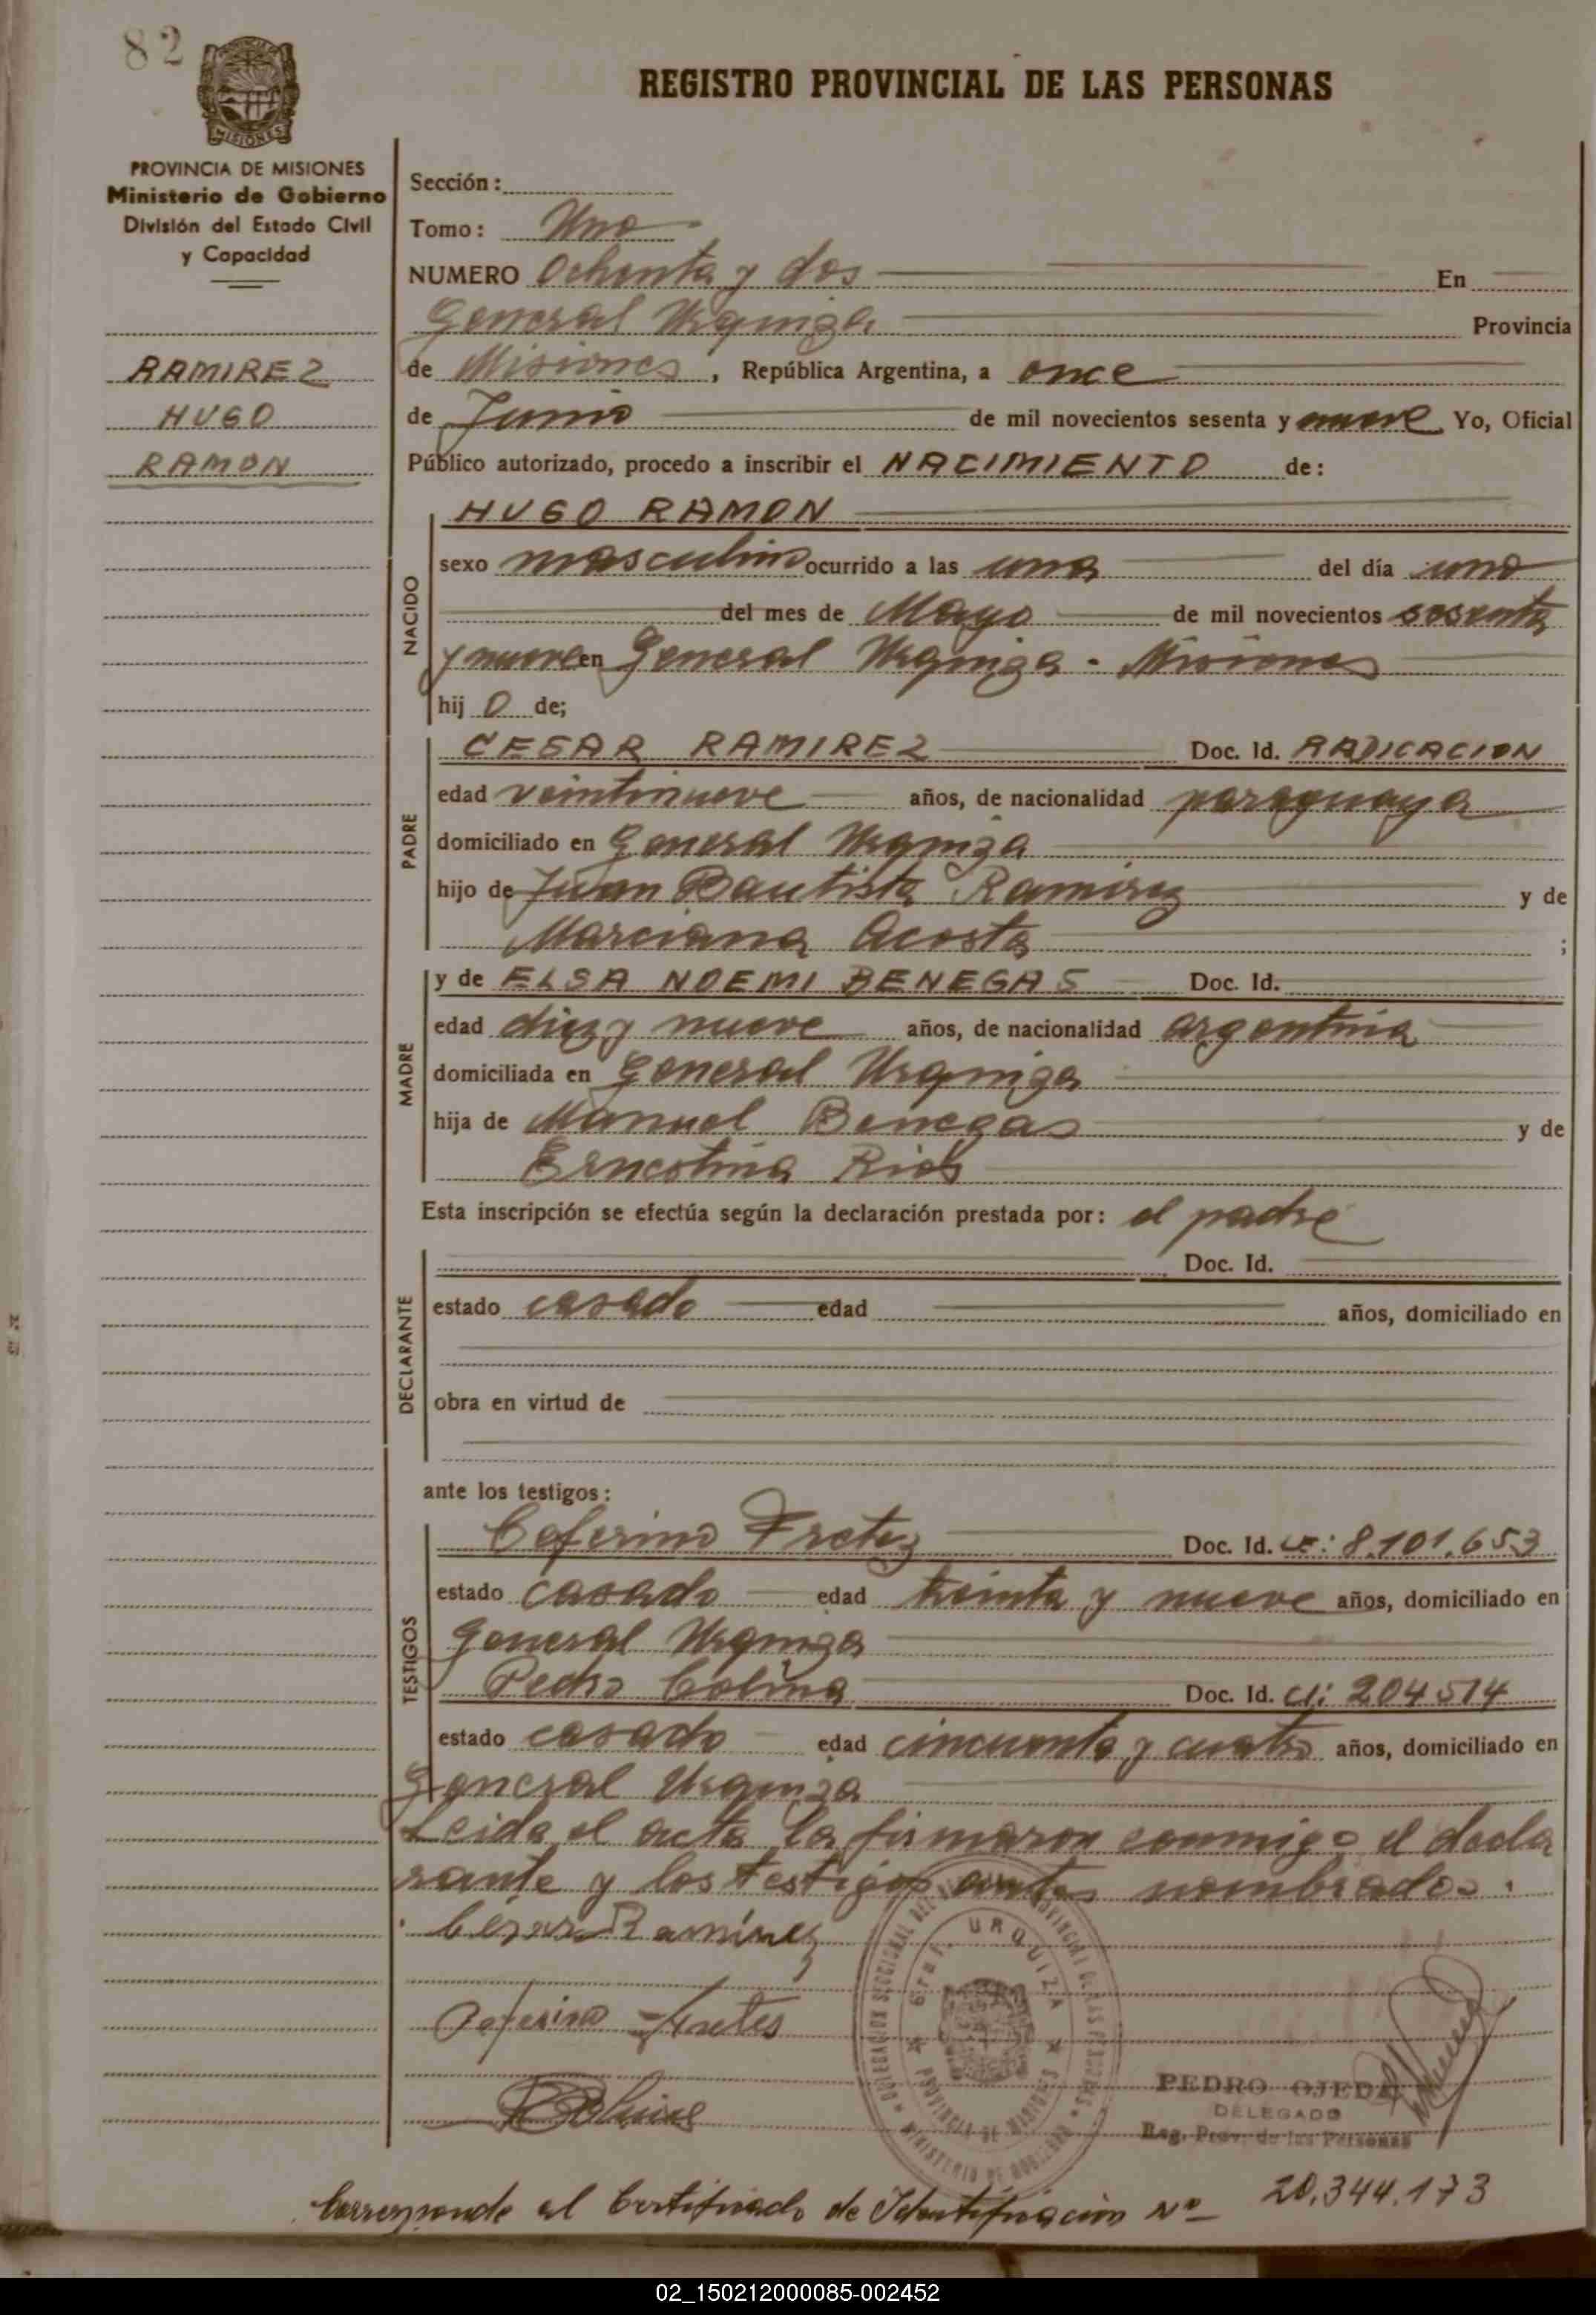 82
REGISTRO PROVINCIAL DE LAS PERSONAS
MISIONES
PROVINCIA DE MISIONES
Ministerio de Gobierno
División del Estado Civil
y Capacidad
RAMIREZ
HUGO
RAMON
Sección:
Tomo: Uno
NUMERO Ochenta y dos En
General Urquiza Provincia
de Misiones, República Argentina, a once
de Junio de mil novecientos sesenta y nueve Yo, Oficial
Público autorizado, procedo a inscribir el NACIMIENTO de:
NACIDO
HUGO RAMON
sexo masculino ocurrido a las una del día uno
del mes de Mayo de mil novecientos sesenta
y nueve en General Urquiza - Misiones
hij o de;
PADRE
CESAR RAMIREZ Doc. Id. RADICACION
edad veintinueve años, de nacionalidad paraguaya
domiciliado en General Urquiza
hijo de Juan Bautista Ramirez y de
Marciana Acosta ;
MADRE
y de ELSA NOEMI BENEGAS Doc. Id.
edad diez y nueve años, de nacionalidad argentina
domiciliada en General Urquiza
hija de Manuel Benegas y de
Ernestina Rios
Esta inscripción se efectúa según la declaración prestada por: el padre
DECLARANTE
Doc. Id.
estado casado edad años, domiciliado en
obra en virtud de
ante los testigos:
TESTIGOS
Ceferino Fretez Doc. Id. LE: 8.101.653
estado casado edad treinta y nueve años, domiciliado en
General Urquiza
Pedro Colina Doc. Id. CI: 204514
estado casado edad cincuenta y cuatro años, domiciliado en
General Urquiza
Leida el acta la firmaron conmigo el decla
rante y los testigos antes nombrados.
César Ramírez
Ceferino Fretes
Gral. URQUIZA
PROVINCIA DE MISIONES
MINISTERIO DE GOBIERNO
PEDRO OJEDA
DELEGADO
Reg. Prov. de las Personas
Corresponde al Certificado de Identificación Nº 20.344.173
02_150212000085-002452